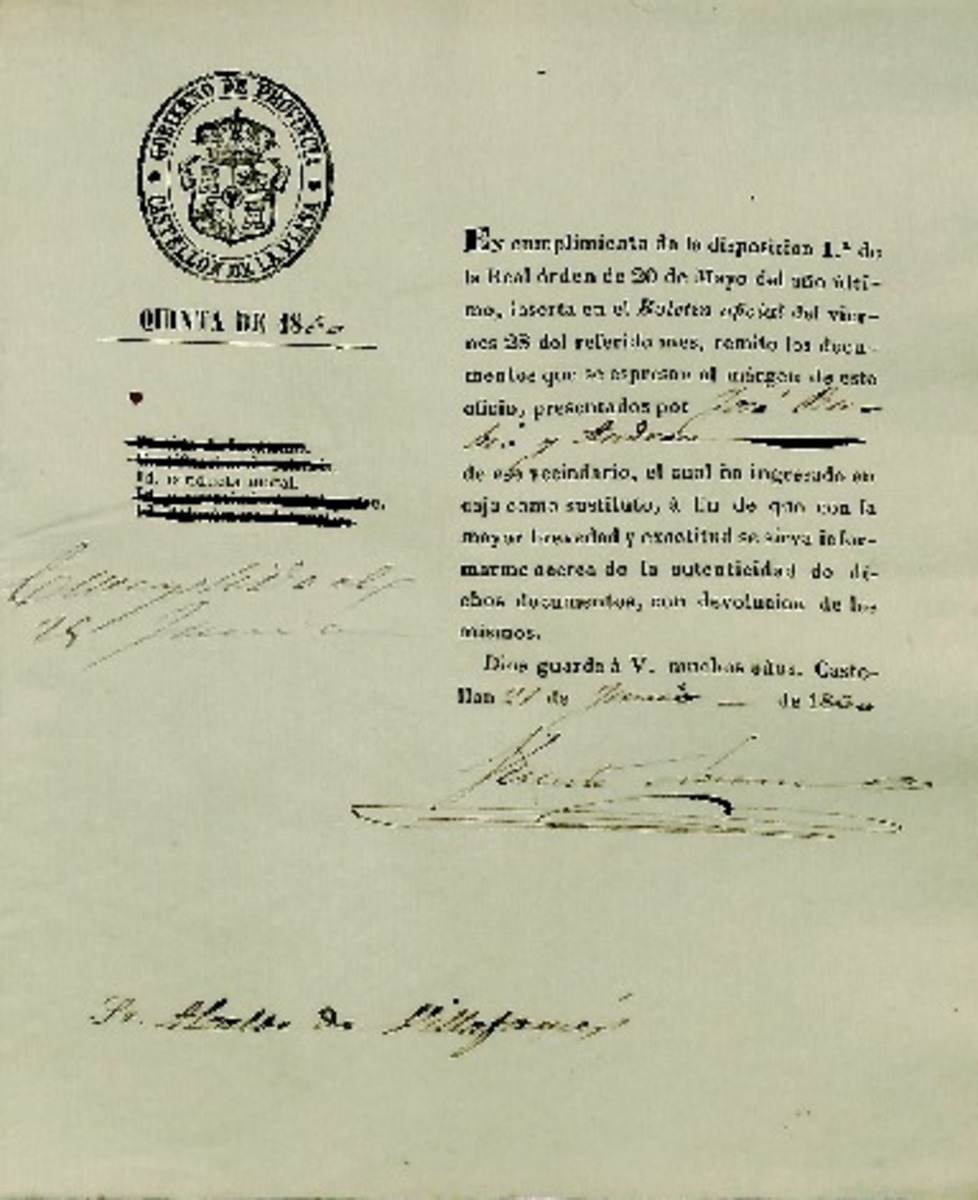 GOBIERNO DE PROVINCIA
CASTELLON DE LA PLANA
QUINTA DE 18
Id. conducta moral.
Cumplido el
25 Junio
EN cumplimiento de la disposicion 1.ª de
la Real órden de 20 de Mayo del año últi-
mo, inserta en el Boletin oficial del vier-
nes 28 del referido mes, remito los docu-
mentos que se espresan al márgen de este
oficio, presentados por José
y
de ese vecindario, el cual ha ingresado en
caja como sustituto, á fin de que con la
mayor brevedad y exactitud se sirva infor-
marme acerca de la autenticidad de di-
chos documentos, con devolucion de los
mismos.
Dios guarde á V. muchos años. Caste-
llon 21 de Junio de 18
Sr. Alcalde de Villafamés